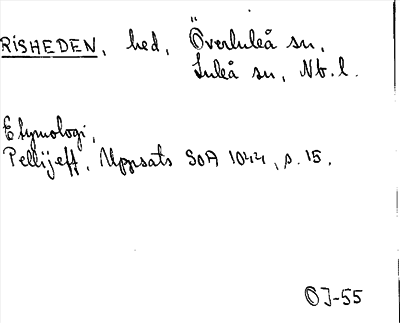 RISHEDEN, hed, Överluleå sn,
Luleå sn, Nb. l.
Etymologi,
Pellijeff, Uppsats SOA 1044, s. 15.
OJ-55